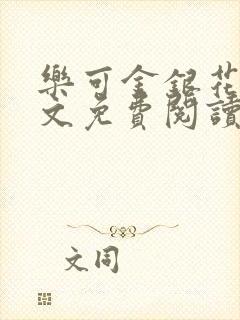 樂可金銀花
文免費閱讀
文同